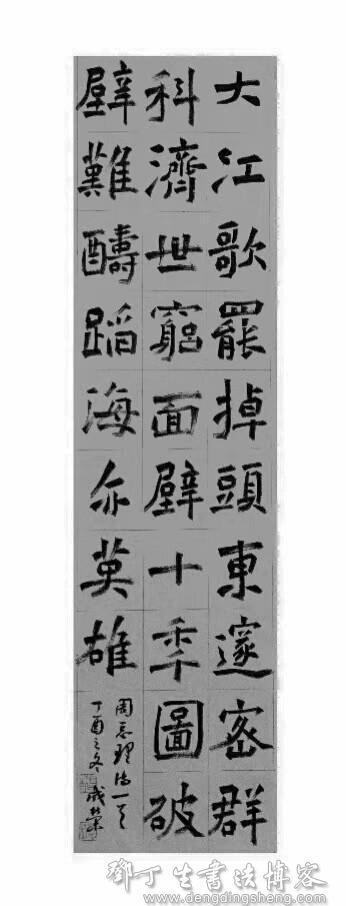 大江歌罷掉頭東邃密群
科濟世窮面壁十秊圖破
壁難醻蹈海亦英雄
周总理诗一首
丁酉之冬
鄧丁生書法博客
www.dengdingsheng.com